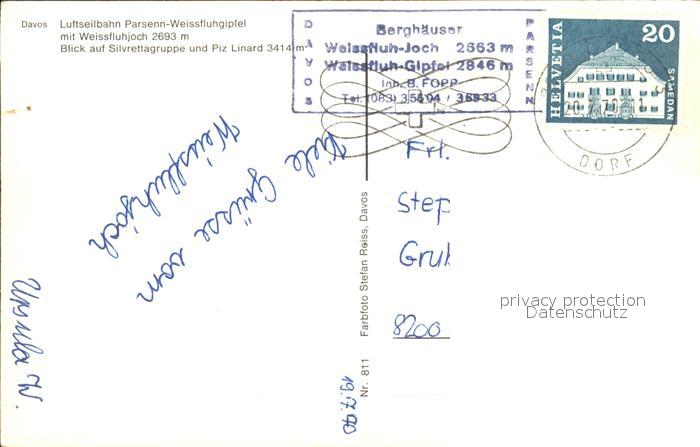 Davos Luftseilbahn Parsenn-Weissfluhgipfel
mit Weissfluhjoch 2693 m
Blick auf Silvrettagruppe und Piz Linard 3414 m
DAVOS
Berghäuser
Weissfluh-Joch 2663 m
Weissfluh-Gipfel 2846 m
Inh. B. FOPP
Tel. (083) 3 55 04 / 3 59 33
PARSENN
HELVETIA
20
SAMEDAN
DORF
Viele Grüsse vom
Weissfluhjoch
Ursula W.
19.7.70
Nr. 811 Farbfoto Stefan Reiss, Davos
Frl.
Step
Gru
8200
privacy protection
Datenschutz